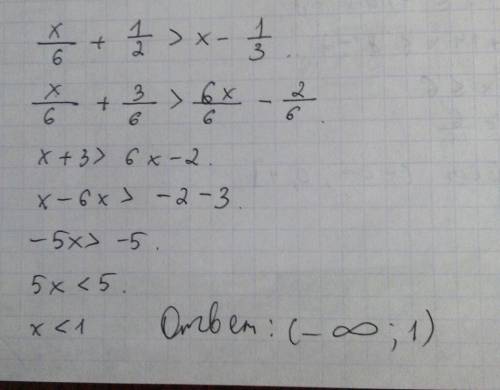 x/6 + 1/2 > x - 1/3.
x/6 + 3/6 > 6x/6 - 2/6.
x + 3 > 6x - 2.
x - 6x > -2 - 3.
-5x > -5.
5x < 5.
x < 1 Ответ: (-∞; 1)